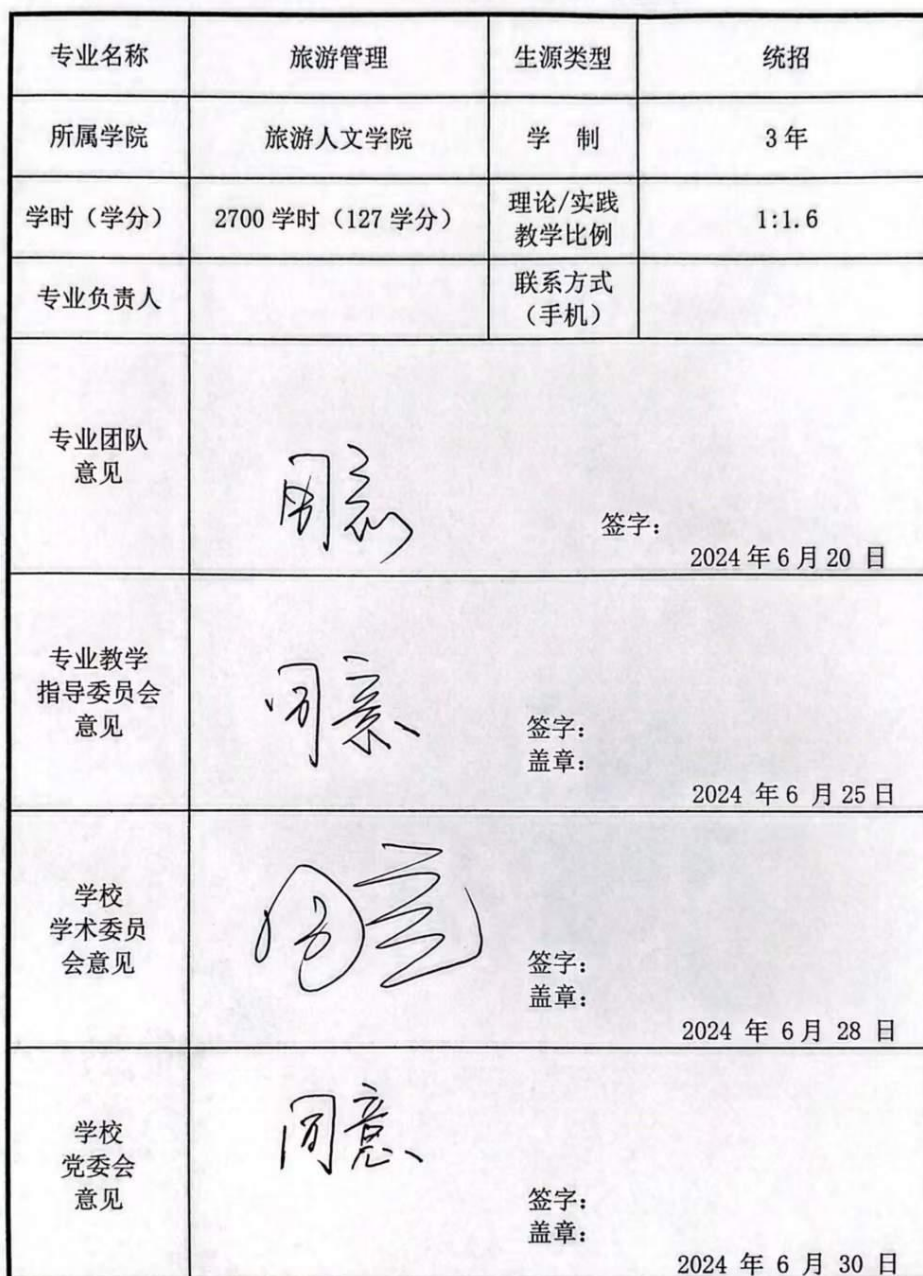 专业名称 旅游管理 生源类型 统招
所属学院 旅游人文学院 学 制 3年
学时（学分） 2700 学时（127 学分） 理论/实践
教学比例 1:1.6
专业负责人 联系方式
（手机）
专业团队
意见
同意
签字：
2024 年 6 月 20 日
专业教学
指导委员会
意见
同意
签字：
盖章：
2024 年 6 月 25 日
学校
学术委员
会意见
同意
签字：
盖章：
2024 年 6 月 28 日
学校
党委会
意见
同意
签字：
盖章：
2024 年 6 月 30 日